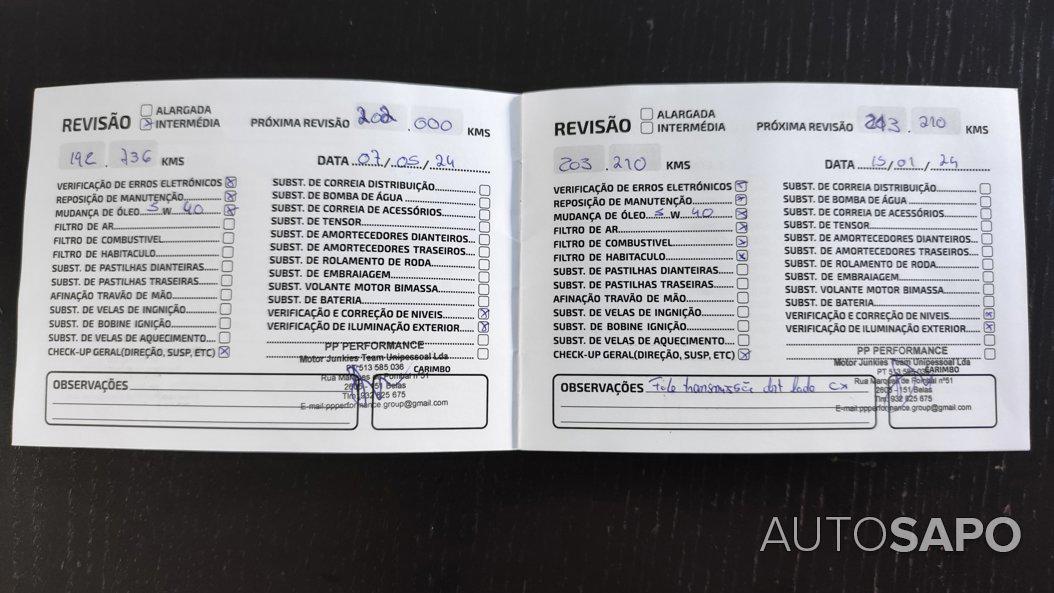 REVISÃO
ALARGADA
INTERMÉDIA
PRÓXIMA REVISÃO 202.000 KMS
192.736 KMS
DATA 07/05/24
VERIFICAÇÃO DE ERROS ELETRÓNICOS
REPOSIÇÃO DE MANUTENÇÃO
MUDANÇA DE ÓLEO 5 W 40
FILTRO DE AR
FILTRO DE COMBUSTIVEL
FILTRO DE HABITACULO
SUBST. DE PASTILHAS DIANTEIRAS
SUBST. DE PASTILHAS TRASEIRAS
AFINAÇÃO TRAVÃO DE MÃO
SUBST. DE VELAS DE INGNIÇÃO
SUBST. DE BOBINE IGNIÇÃO
SUBST. DE VELAS DE AQUECIMENTO
CHECK-UP GERAL(DIREÇÃO, SUSP, ETC)
SUBST. DE CORREIA DISTRIBUIÇÃO
SUBST. DE BOMBA DE ÁGUA
SUBST. DE CORREIA DE ACESSÓRIOS
SUBST. DE TENSOR
SUBST. DE AMORTECEDORES DIANTEIROS
SUBST. DE AMORTECEDORES TRASEIROS
SUBST. DE ROLAMENTO DE RODA
SUBST. DE EMBRAIAGEM
SUBST. VOLANTE MOTOR BIMASSA
SUBST. DE BATERIA
VERIFICAÇÃO E CORREÇÃO DE NIVEIS
VERIFICAÇÃO DE ILUMINAÇÃO EXTERIOR
PP PERFORMANCE
Motor Junkies Team Unipessoal Lda
PT 513 585 036
CARIMBO
Rua Marques de Pombal nº51
2605 - 151 Belas
Tlm: 932 625 675
E-mail:ppperformance.group@gmail.com
OBSERVAÇÕES
REVISÃO
ALARGADA
INTERMÉDIA
PRÓXIMA REVISÃO 213.210 KMS
203.210 KMS
DATA 15/01/24
VERIFICAÇÃO DE ERROS ELETRÓNICOS
REPOSIÇÃO DE MANUTENÇÃO
MUDANÇA DE ÓLEO 5 W 40
FILTRO DE AR
FILTRO DE COMBUSTIVEL
FILTRO DE HABITACULO
SUBST. DE PASTILHAS DIANTEIRAS
SUBST. DE PASTILHAS TRASEIRAS
AFINAÇÃO TRAVÃO DE MÃO
SUBST. DE VELAS DE INGNIÇÃO
SUBST. DE BOBINE IGNIÇÃO
SUBST. DE VELAS DE AQUECIMENTO
CHECK-UP GERAL(DIREÇÃO, SUSP, ETC)
SUBST. DE CORREIA DISTRIBUIÇÃO
SUBST. DE BOMBA DE ÁGUA
SUBST. DE CORREIA DE ACESSÓRIOS
SUBST. DE TENSOR
SUBST. DE AMORTECEDORES DIANTEIROS
SUBST. DE AMORTECEDORES TRASEIROS
SUBST. DE ROLAMENTO DE RODA
SUBST. DE EMBRAIAGEM
SUBST. VOLANTE MOTOR BIMASSA
SUBST. DE BATERIA
VERIFICAÇÃO E CORREÇÃO DE NIVEIS
VERIFICAÇÃO DE ILUMINAÇÃO EXTERIOR
PP PERFORMANCE
Motor Junkies Team Unipessoal Lda
PT 513 585 036
CARIMBO
Rua Marques de Pombal nº51
2605 - 151 Belas
Tlm: 932 625 675
E-mail:ppperformance.group@gmail.com
OBSERVAÇÕES Fole transmissão lado cx
AUTOSAPO